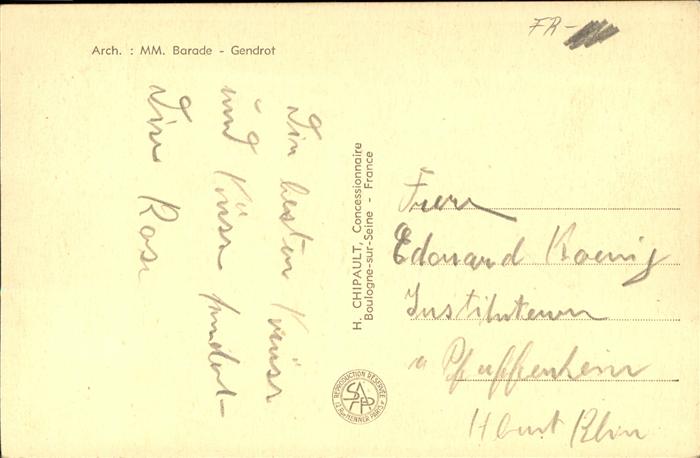 FR-
Arch. : MM. Barade - Gendrot
Die besten Grüsse
und Küsse sendet
Dir Rosa
H. CHIPAULT, Concessionnaire
Boulogne-sur-Seine - France
REPRODUCTION RÉSERVÉE
SAPP
Frau
Edouard Koenig
Instituteur
Pfaffenheim
Haut Rhin